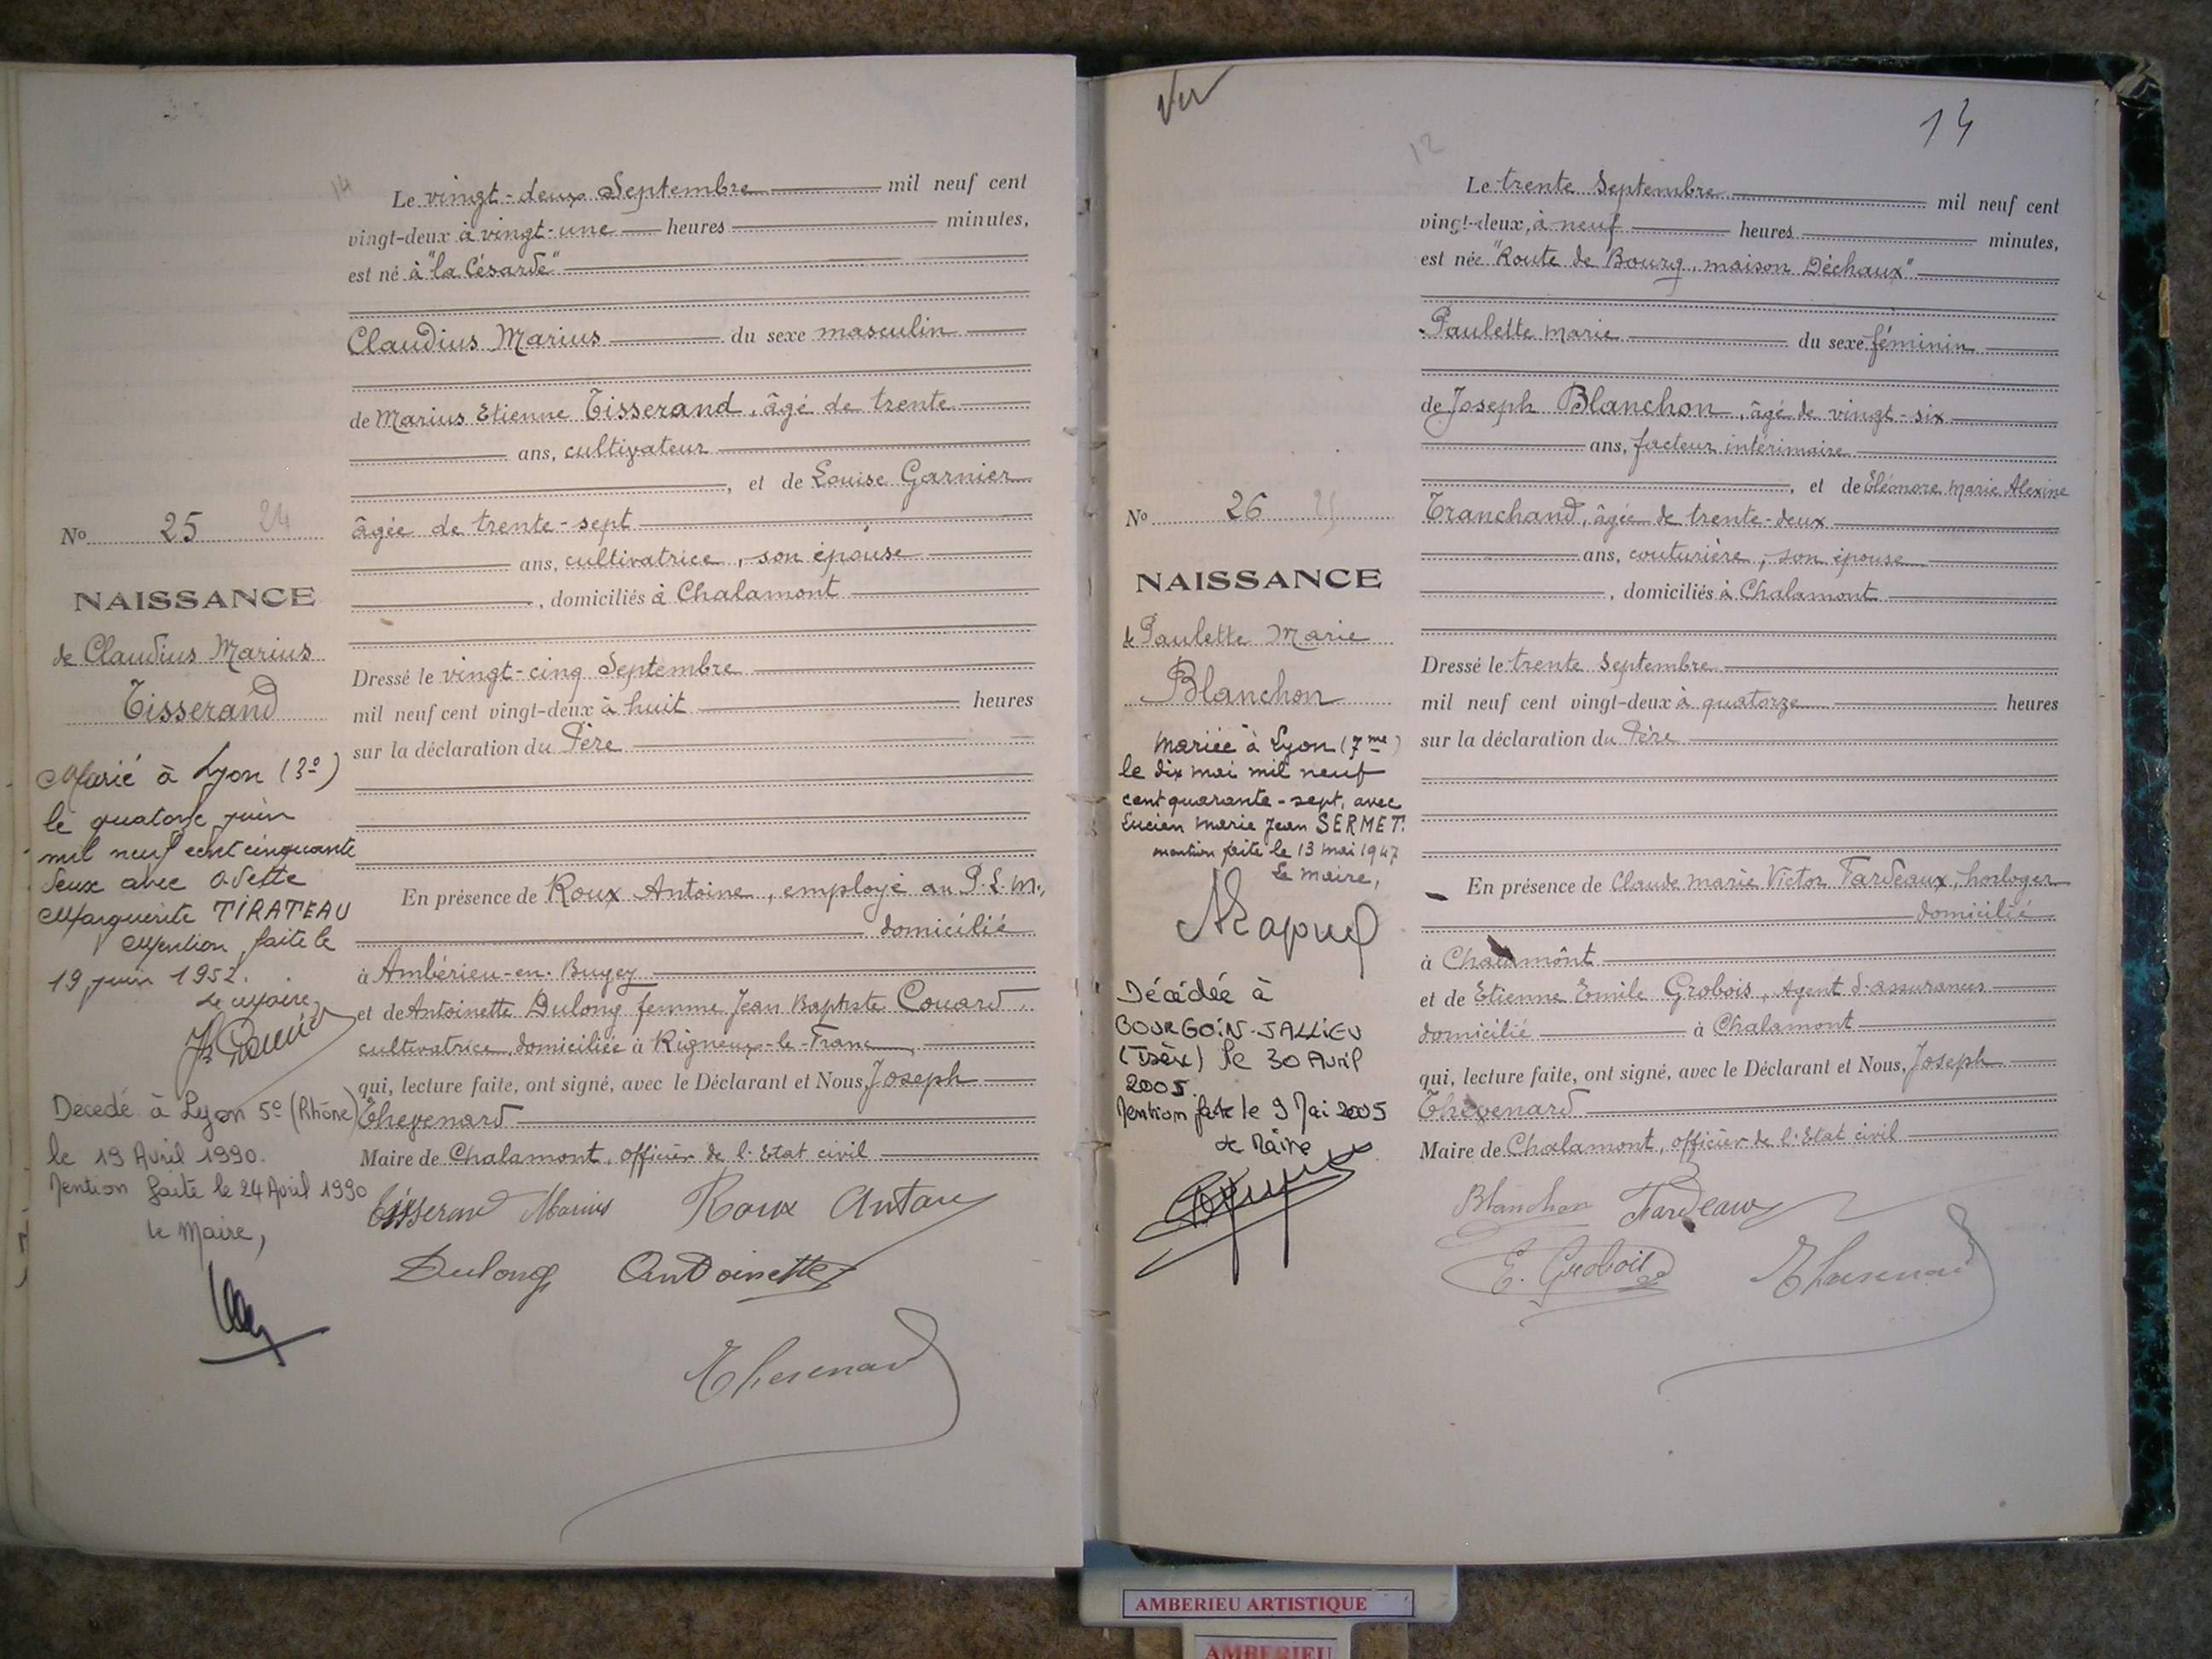 14
Le vingt-deux Septembre mil neuf cent
vingt-deux à vingt-une heures minutes,
est né à "la Césarde"
Claudius Marius du sexe masculin
de Marius Etienne Tisserand, âgé de trente
ans, cultivateur
, et de Louise Garnier
âgée de trente-sept
ans, cultivatrice, son épouse
, domiciliés à Chalamont
Dressé le vingt-cinq Septembre
mil neuf cent vingt-deux à huit heures
sur la déclaration du Père
En présence de Roux Antoine, employé au P.L.M.,
domicilié
à Ambérieu-en-Bugey
et de Antoinette Dulong femme Jean Baptiste Couard
cultivatrice, domiciliée à Rigneux-le-Franc
qui, lecture faite, ont signé, avec le Déclarant et Nous, Joseph
Thevenard
Maire de Chalamont, officier de l'Etat civil
Tisserand Marius Roux
Dulong Antoinette
Thevenard
No 25 24
NAISSANCE
de Claudius Marius
Tisserand
Marié à Lyon (3e)
le quatorze juin
mil neuf cent cinquante
deux avec Odette
Marguerite TIRATEAU
Mention faite le
19 juin 1952.
Le Maire,
Décédé à Lyon 5e (Rhône)
le 19 Avril 1990.
Mention faite le 24 April 1990
le Maire,
Vu
14
12
Le trente Septembre mil neuf cent
vingt-deux, à neuf heures minutes,
est née "Route de Bourg, maison Déchaux"
Paulette Marie du sexe féminin
de Joseph Blanchon, âgé de vingt-six
ans, facteur intérimaire
, et de Eléonore Marie Alexine
Tranchand, âgée de trente-deux
ans, couturière, son épouse
, domiciliés à Chalamont
Dressé le trente Septembre
mil neuf cent vingt-deux à quatorze heures
sur la déclaration du Père
En présence de Claude Marie Victor Fardeaux, horloger
domicilié
à Chalamont
et de Etienne Emile Grobois, Agent d'assurances
domicilié à Chalamont
qui, lecture faite, ont signé, avec le Déclarant et Nous, Joseph
Thevenard
Maire de Chalamont, officier de l'Etat civil
Blanchon Fardeaux
E. Grobois Thevenard
No 26 25
NAISSANCE
de Paulette Marie
Blanchon
Mariée à Lyon (7me)
le dix mai mil neuf
cent quarante-sept, avec
Lucien Marie Jean SERMET.
mention faite le 13 mai 1947
Le maire,
Décédée à
BOURGOIN-JALLIEU
(Isère) le 30 Avril
2005.
Mention faite le 9 Mai 2005
Le Maire
AMBERIEU ARTISTIQUE
AMBERIEU